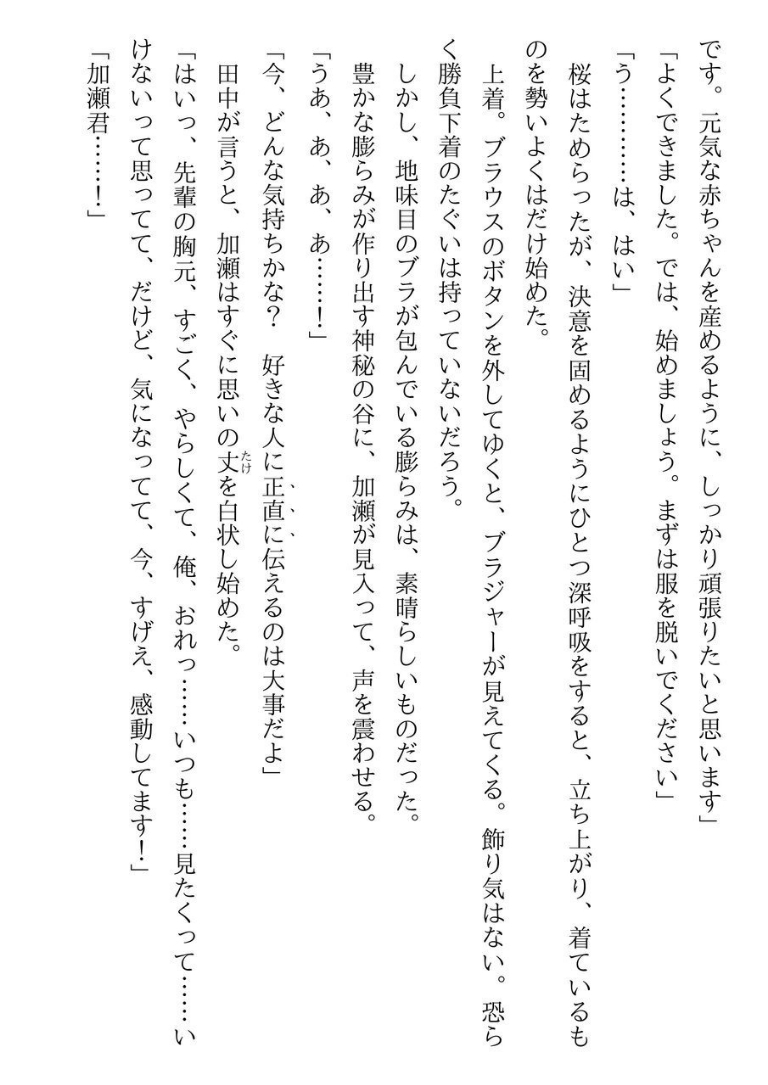 です。元気な赤ちゃんを産めるように、しっかり頑張りたいと思います」
「よくできました。では、始めましょう。まずは服を脱いでください」
「う…………は、はい」
　桜はためらったが、決意を固めるようにひとつ深呼吸をすると、立ち上がり、着ているも
のを勢いよくはだけ始めた。
　上着。ブラウスのボタンを外してゆくと、ブラジャーが見えてくる。飾り気はない。恐ら
く勝負下着のたぐいは持っていないだろう。
　しかし、地味目のブラが包んでいる膨らみは、素晴らしいものだった。
　豊かな膨らみが作り出す神秘の谷に、加瀬が見入って、声を震わせる。
「うあ、あ、あ、あ……！」
「今、どんな気持ちかな？　好きな人に正直に伝えるのは大事だよ」
　田中が言うと、加瀬はすぐに思いの丈たけを白状し始めた。
「はいっ、先輩の胸元、すごく、やらしくて、俺、おれっ……いつも……見たくって……い
けないって思ってて、だけど、気になってて、今、すげえ、感動してます！」
「加瀬君……！」